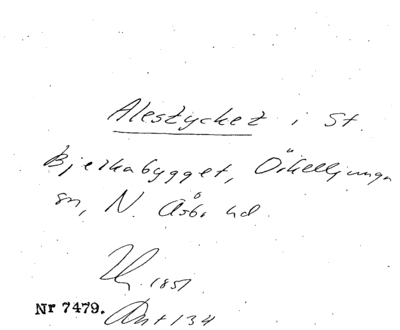 Alestycket i St.
Bjerkabygget, Örkelljunga
sn, N. Åsbo hd.
1851
Nr 7479. Akt 134